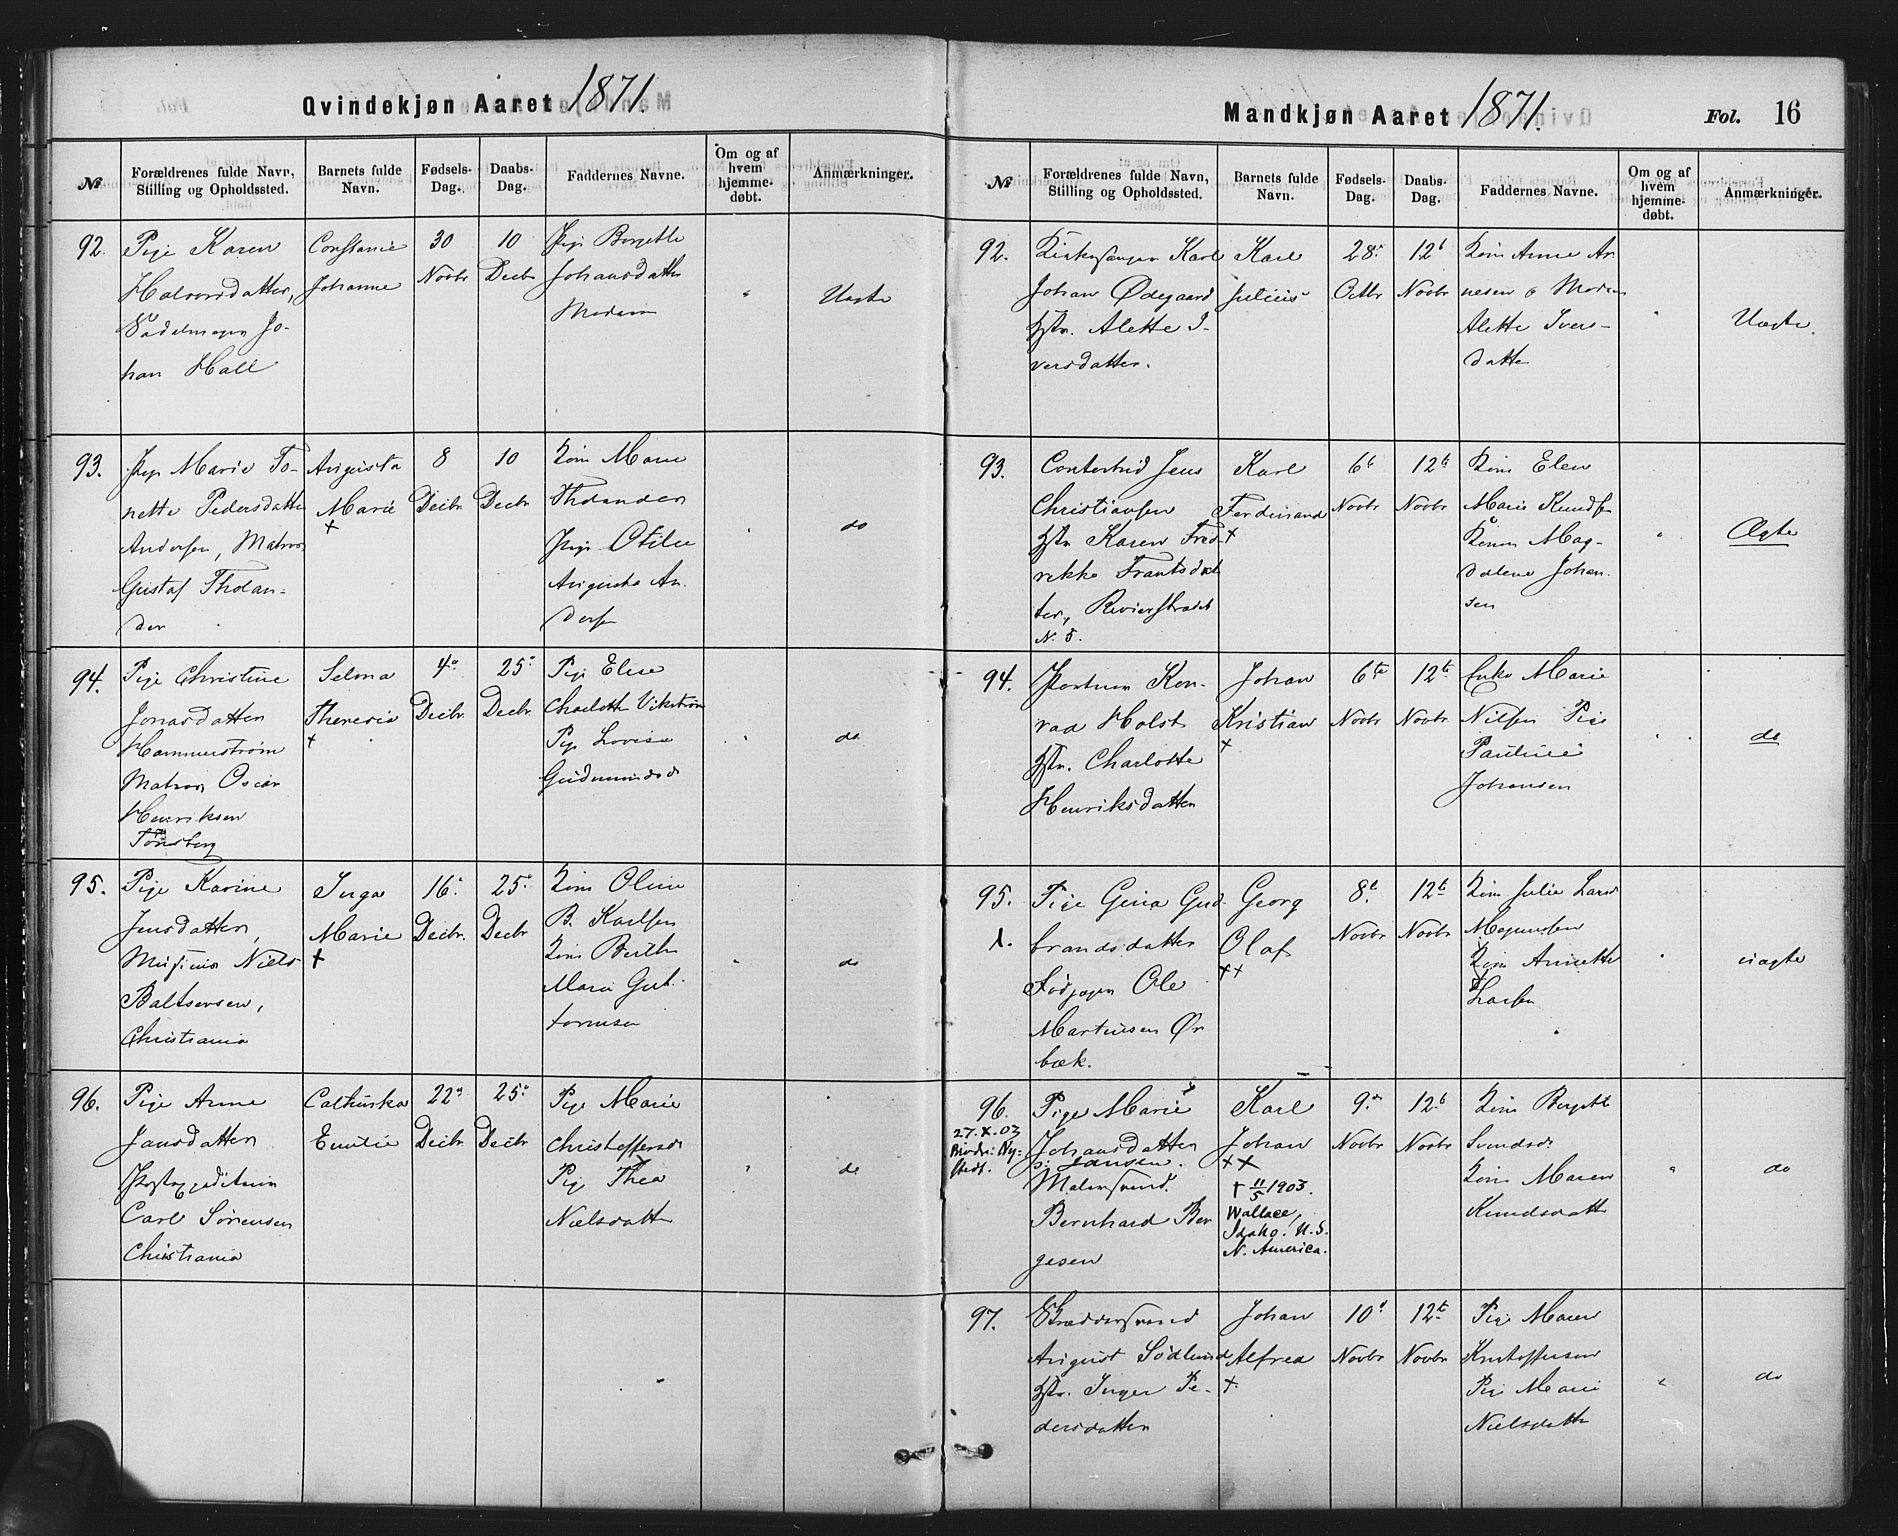 Qvindekjøn Aaret 1871.
№
Forældrenes fulde Navn,
Stilling og Opholdssted.
Barnets fulde
Navn.
Fødsels-
Dag.
Daabs-
Dag.
Faddernes Navne.
Om og af
hvem
hjemme-
døbt.
Anmærkninger.
92. Pige Karen
Halvorsdatter,
Sadelmager Jo-
han Hall
Constanse
Johanne
30
Novbr
10
Decbr
Pige Bergette
Johansdatter
Moderen
"
Uægte
93. Pige Marie To-
nette Pedersdatter
Andersen, Matros
Gustaf Tholan-
der
Augusta
Marie
+
8
Decbr
10
Decbr
Kone Marie
Tholander
Pige Otilie
Augusta An-
dersen
"
do
94. Pige Christine
Jonasdatter
Hammerstrøm
Matros Oscar
Henriksen
Tønsberg
Selma
Theresia
+
4de
Decbr.
25
Decbr.
Pige Elise
Charlotte Vikstrøm
Pige Lovise
Gudmundsd
"
do
95. Pige Karine
Jensdatter,
Musicus Niels
Baltsersen,
Christiania
Inga
Marie
+
16
Decbr.
25
Decbr
Kone Oline
B. Karlsen
Kone Berthe
Marie Gut-
tormsen
"
do
96. Pige Anne
Jansdatter
Postexpeditør
Carl Sørensen
Christiania
Cathinka
Emilie
22
Decbr
25
Decbr
Pige Marie
Christoffersd
Pige Thea
Nielsdatter
"
do
Mandkjøn Aaret 1871.
Fol. 16
№
Forældrenes fulde Navn,
Stilling og Opholdssted.
Barnets fulde
Navn.
Fødsels-
Dag.
Daabs-
Dag.
Faddernes Navne.
Om og af
hvem
hjemme-
døbt.
Anmærkninger.
92. Kirkesanger Karl
Johan Ødegaard
Hstr. Alette I-
versdatter.
Karl
Julius
28
Octbr
12
Novbr
Kone Anne Ar
nesen o Moderen
Alette Ivers-
datter
"
Uægte.
93. Contorbud Jens
Christiansen
Hstr Karen Fred-
rikke Frantsdat
ter, Revierstrædet
N. 5.
Karl
Ferdinand
+
6te
Novbr
12te
Novbr
Kone Elen
Marie Knudsen
Konen Mag-
dalene Johan-
sen
"
Ægte
94. Portner Kon-
rad Holst
Hstr. Charlotte
Henriksdatter
Johan
Kristian
+
6te
Novbr
12te
Novbr
Enke Marie
Nilsen Pige
Pauline
Johansen
"
do
95. Pige Gina Gud-
brandsdatter
Ole
Martinsen Ør
bæk.
Georg
Olaf
++
8de
Novbr
12te
Novbr
Kone Julie Lars
Magnussen
Kone Annette
Larsen
"
uægte
96.
27.X.03
Pige Marie
Johansdatter
o: Jansen.
Malersvend.
Bernhard Bør
gesen
Karl
Johan
++
† 11/5 1903.
Wallace,
Idaho. U.S.
N. America.
9
Novbr
12
Novbr
Kone Bergette
Svendsd.
Kone Maren
Knudsdatt
"
do
97. Skræddersvend
August Södlund
Hstr. Inger Pe-
dersdatter
Johan
Alfred
+
10
Novbr
12te
Novbr
Pige Maren
Kristoffersen
Pige Marie
Nielsdatter
"
do